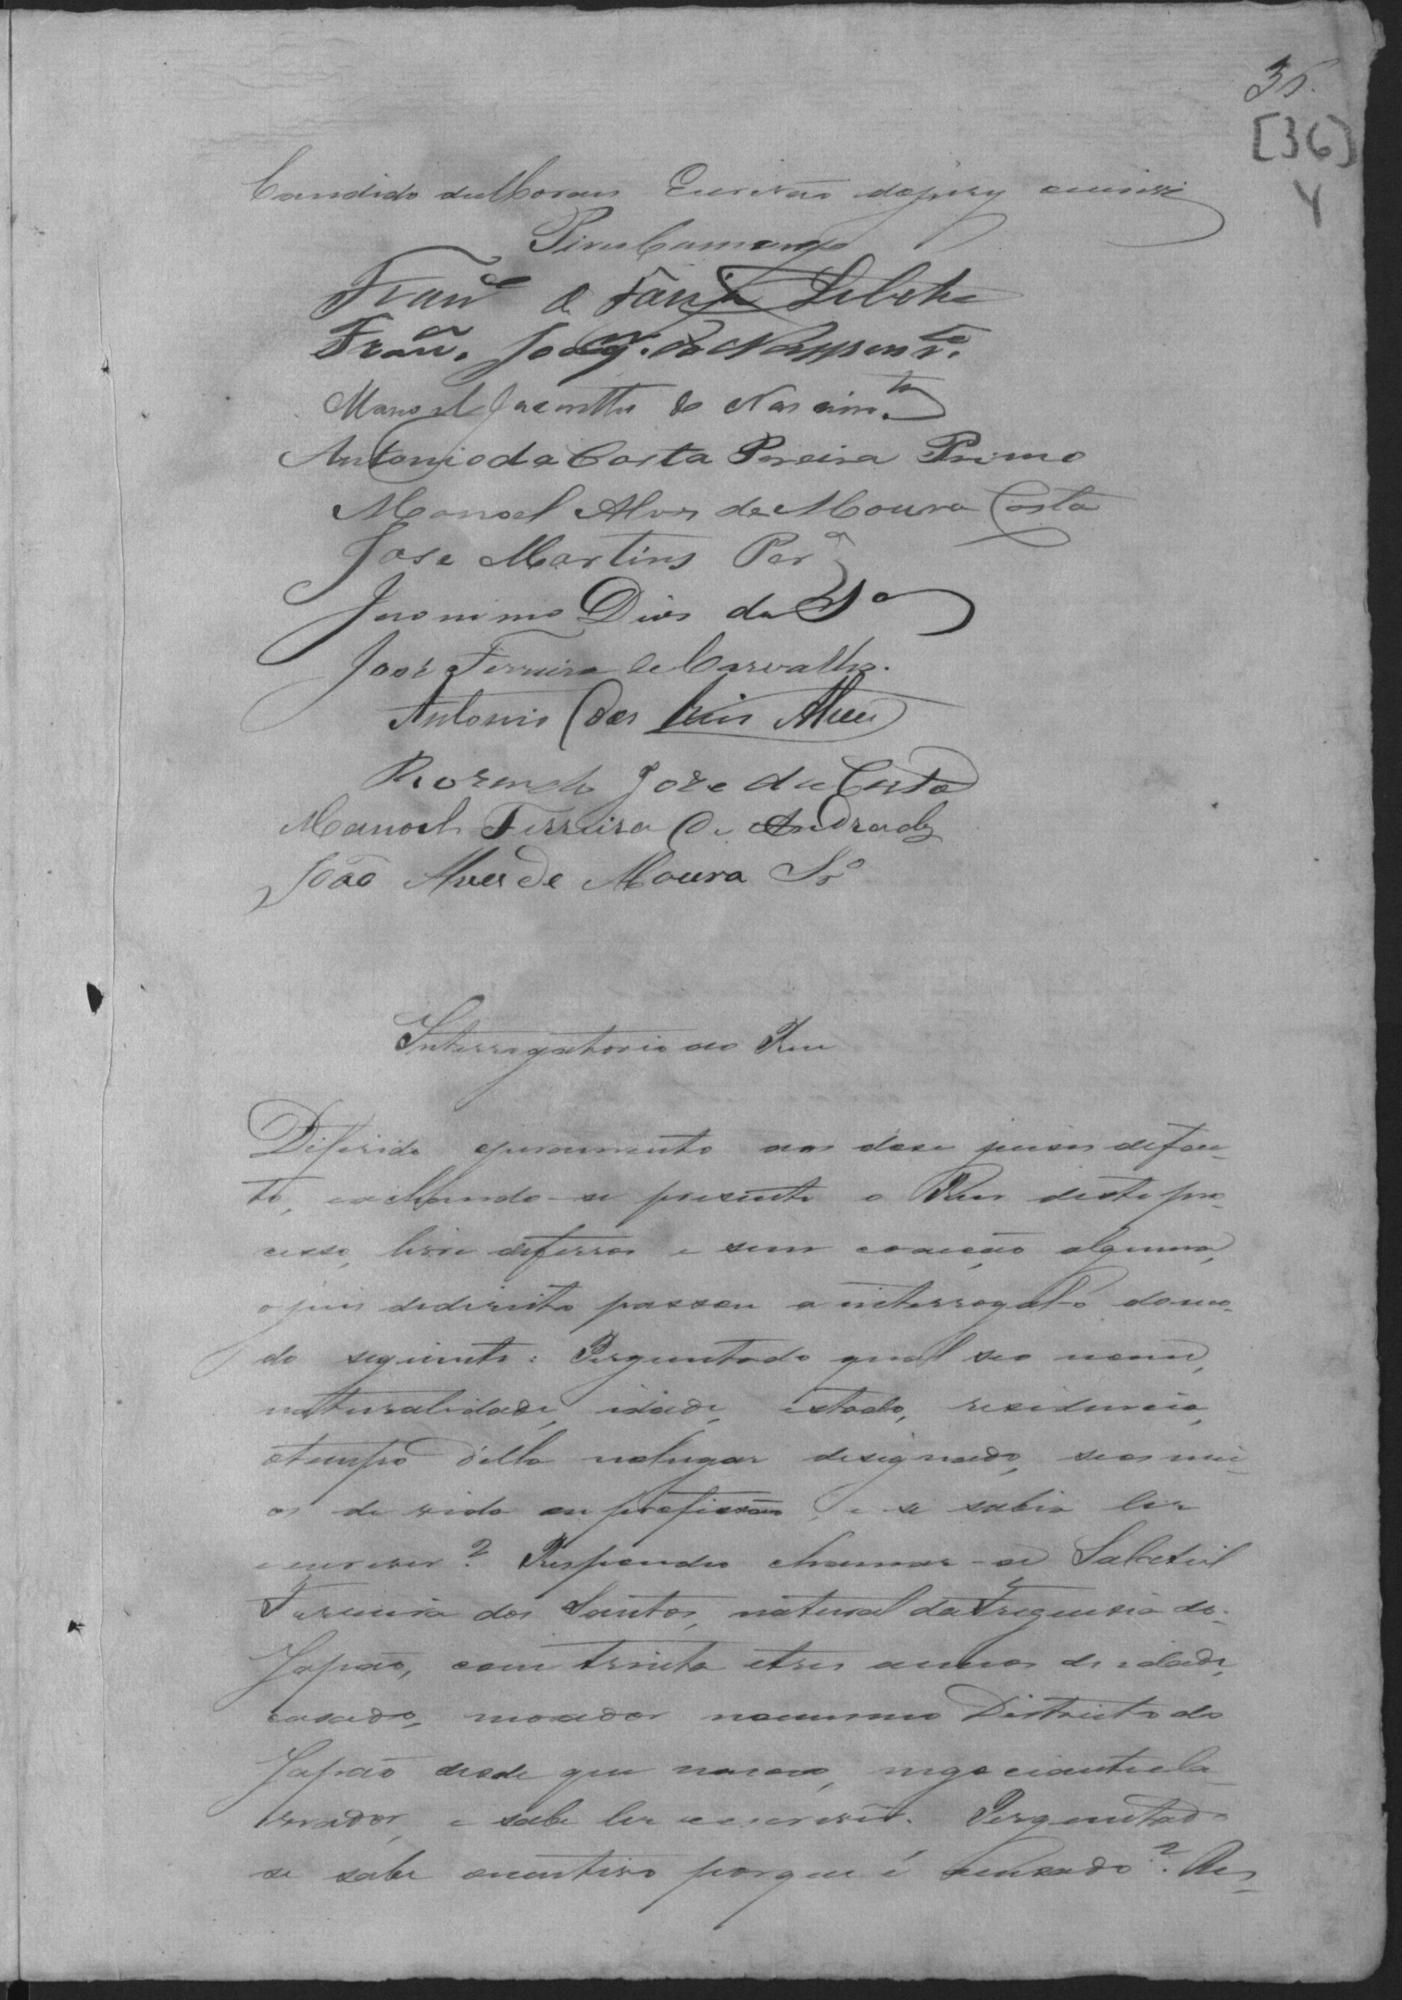 35.
[36]
Candido de Moraes Escrivão do jury escrevi
Pires Camargo
Fran.co de Faria Lobato
Fran.co Joaq. do Nascim.to
Manoel Jacintho do Nascim.to
Antonio da Costa Pereira Primo
Manoel Alves de Moura Costa
Jose Martins Per.a
Jeronimo Dias da S.a
José Ferreira de Carvalho.
Antonio dos Reis Alves
Rozendo Jose da Costa
Manoel Ferreira de Andrade
João Alves de Moura S.o
Interrogatorio ao Reu
Diferido o juramento aos dose juises de fac-
to, e achando-se presente o Reu deste pro-
cesso, livre de ferros e sem coacção alguma,
o juis de direito passou a interrogal-o do mo-
do seguinte: Perguntado qual seo nome,
naturalidade, idade, estado, residencia,
e tempo d'ella no lugar designado, seos mei-
os de vida ou profissão, e se sabia ler
e escrever? Respondeo chamar-se
Ferreira dos Santos, natural da Freguesia do
Japão, com trinta e tres annos de idade,
casado, morador no mesmo Districto do
Japão desde que nasceo, negociante e la-
vrador, e sabe ler e escrever. Perguntado
se sabe o motivo porque é accusado? Res-